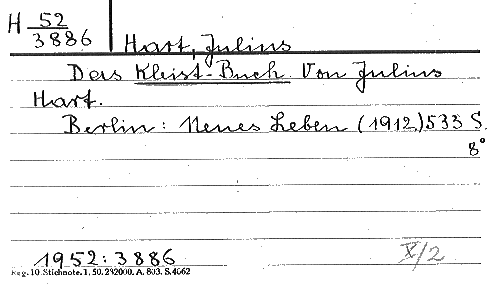 H 52
3886
Hart, Julius
Das Kleist-Buch. Von Julius
Hart.
Berlin: Neues Leben (1912) 533 S.
8°
1952: 3886
X/2
Reg. 10. Stichnote. 1. 50. 232000. A. 803. S. 4662